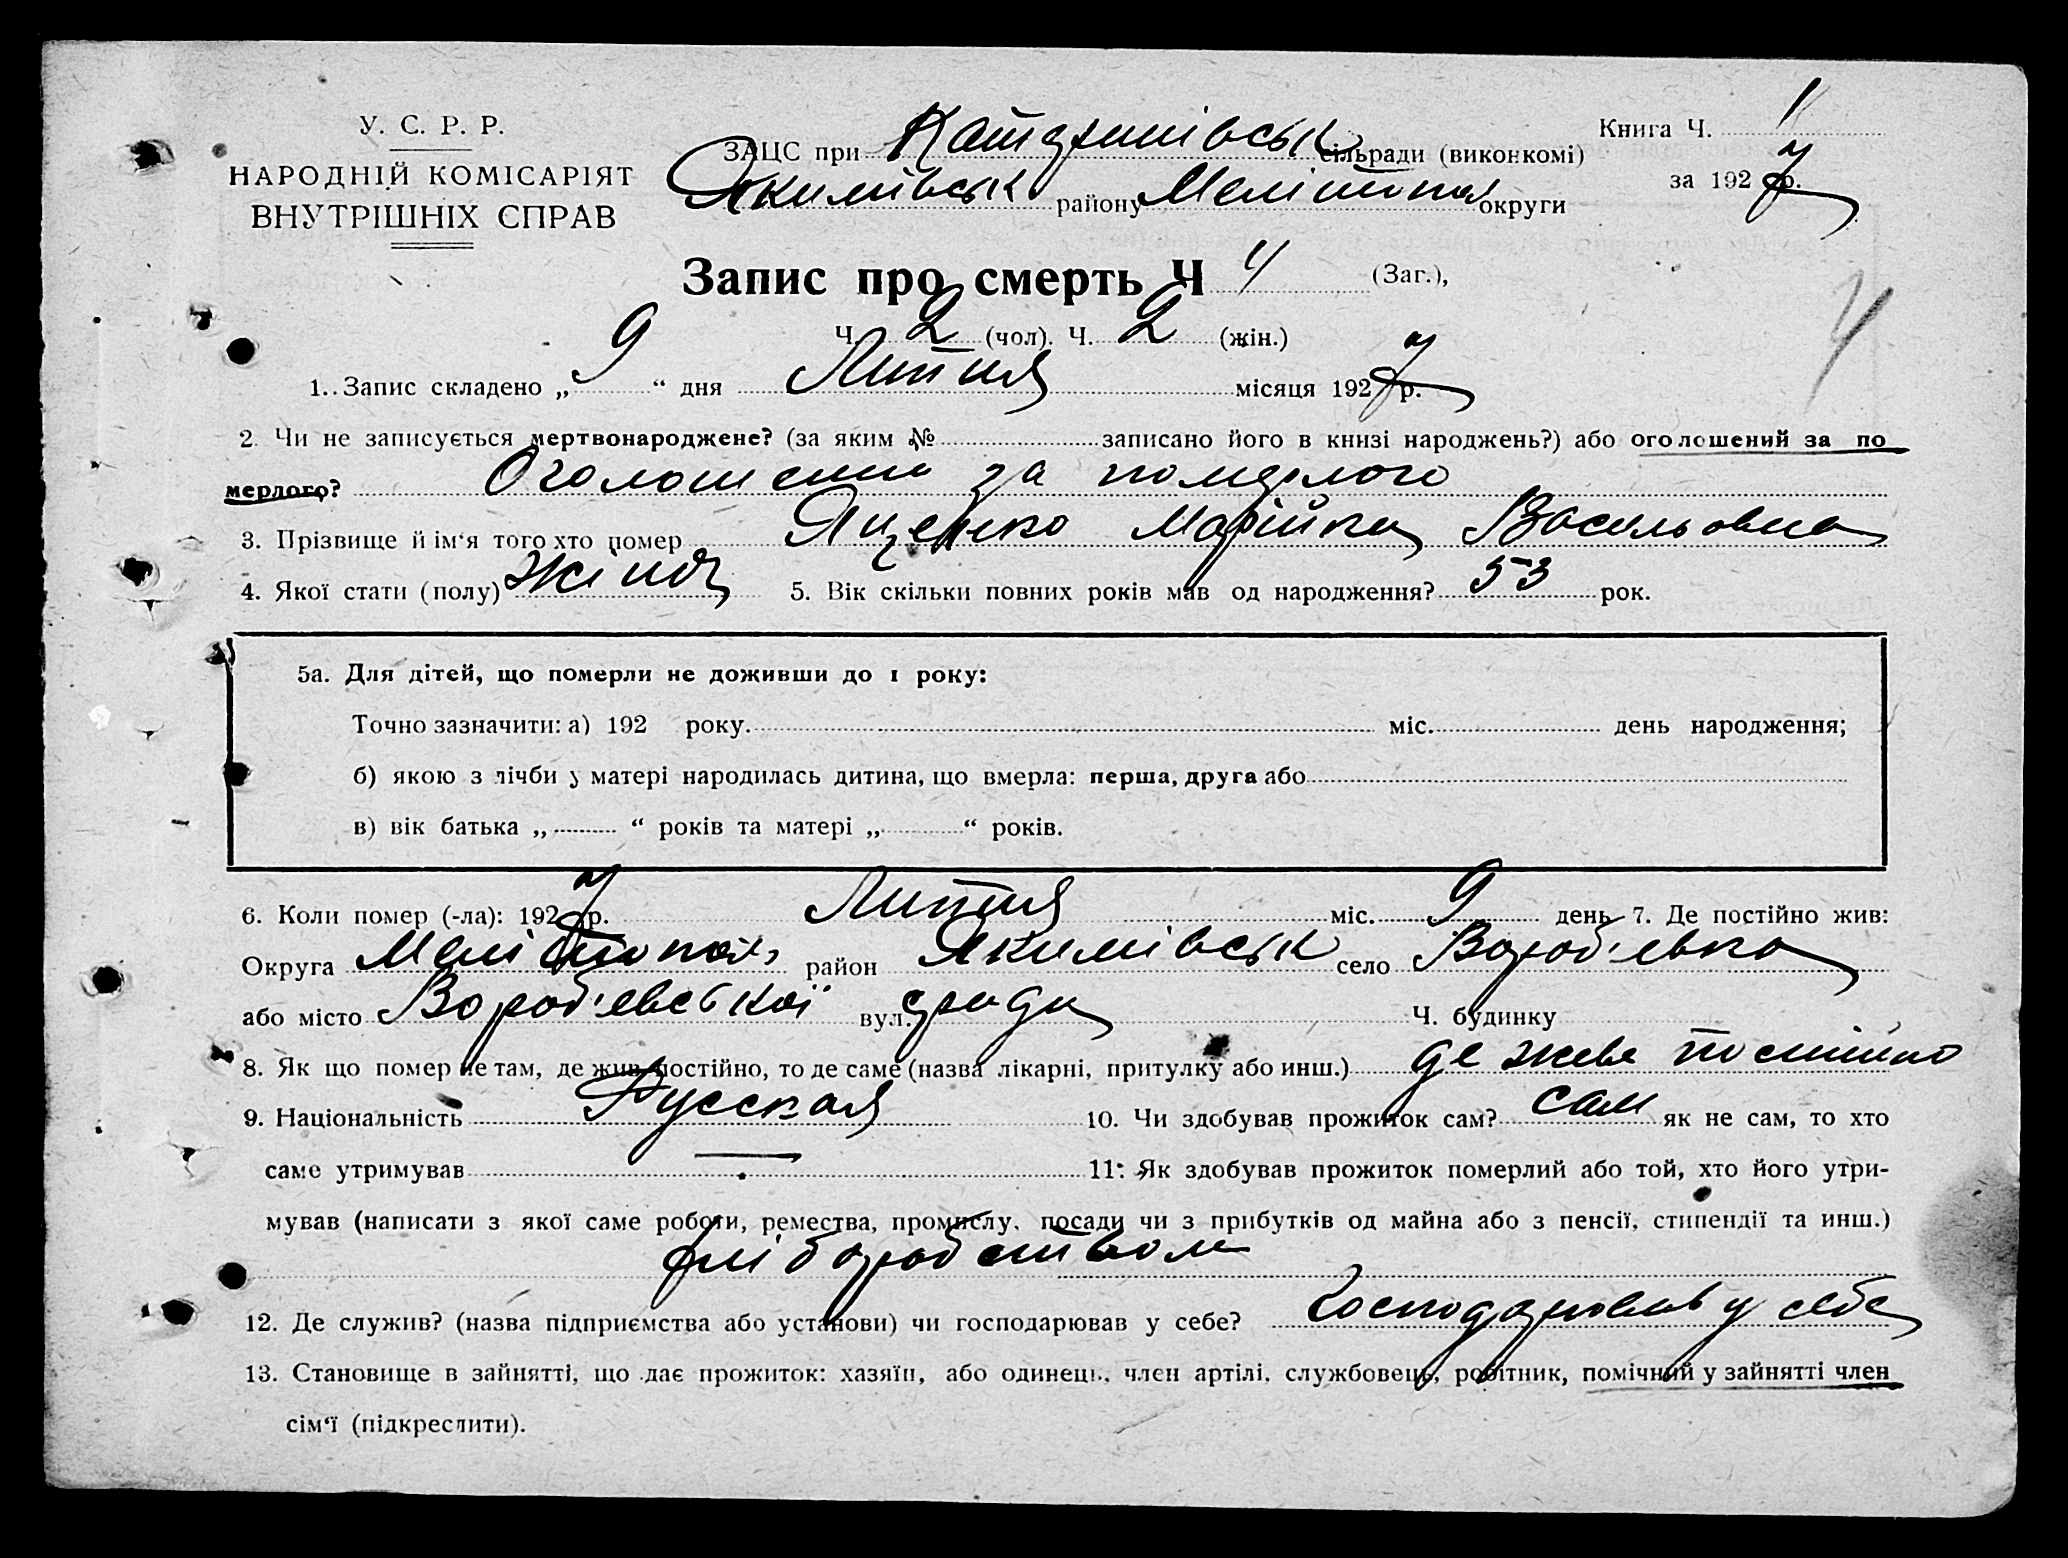 У. С. Р. Р.
НАРОДНІЙ КОМІСАРІЯТ
ВНУТРІШНІХ СПРАВ
ЗАЦС при сільради (виконкомі)
Якимівськ району Меліто округи
Книга Ч. 1
за 1927 р.
Запис про смерть Ч 4 (Заг.),
4
Ч. 2 (чол). Ч. 2 (жін.)
1. Запис складено „ 9 “ дня Липня місяця 1927 р.
2. Чи не записується мертвонароджене? (за яким № записано його в книзі народжень?) або оголошений за по
мерлого? Оголошений за померлого
3. Прізвище й ім‘я того хто помер Яценко Марійка Васильовна
4. Якої стати (полу) 5. Вік скільки повних років мав од народження? 53 рок.
5а. Для дітей, що померли не доживши до 1 року:
Точно зазначити: а) 192 року. міс. день народження;
б) якою з лічби у матері народилась дитина, що вмерла: перша, друга або
в) вік батька „ “ років та матері „ “ років.
6. Коли помер (-ла): 1927 р. Липня міс. 9 день 7. Де постійно жив:
Округа район Якимівськ село Вороб'евка
або місто Вороб'евської вул. сради Ч. будинку
8. Як що помер не там, де жив постійно, то де саме (назва лікарні, притулку або инш.) де живе постійно
9. Національність Русская 10. Чи здобував прожиток сам? сам як не сам, то хто
саме утримував — 11. Як здобував прожиток померлий або той, хто його утри-
мував (написати з якої саме роботи, ремества, промислу, посади чи з прибутків од майна або з пенсії, стипендії та инш.)
хліборобством
12. Де служив? (назва підприємства або установи) чи господарював у себе? Господарював у себе
13. Становище в зайнятті, що дає прожиток: хазяїн, або одинець, член артілі, службовець, робітник, помічний у зайнятті член
сім‘ї (підкреслити).